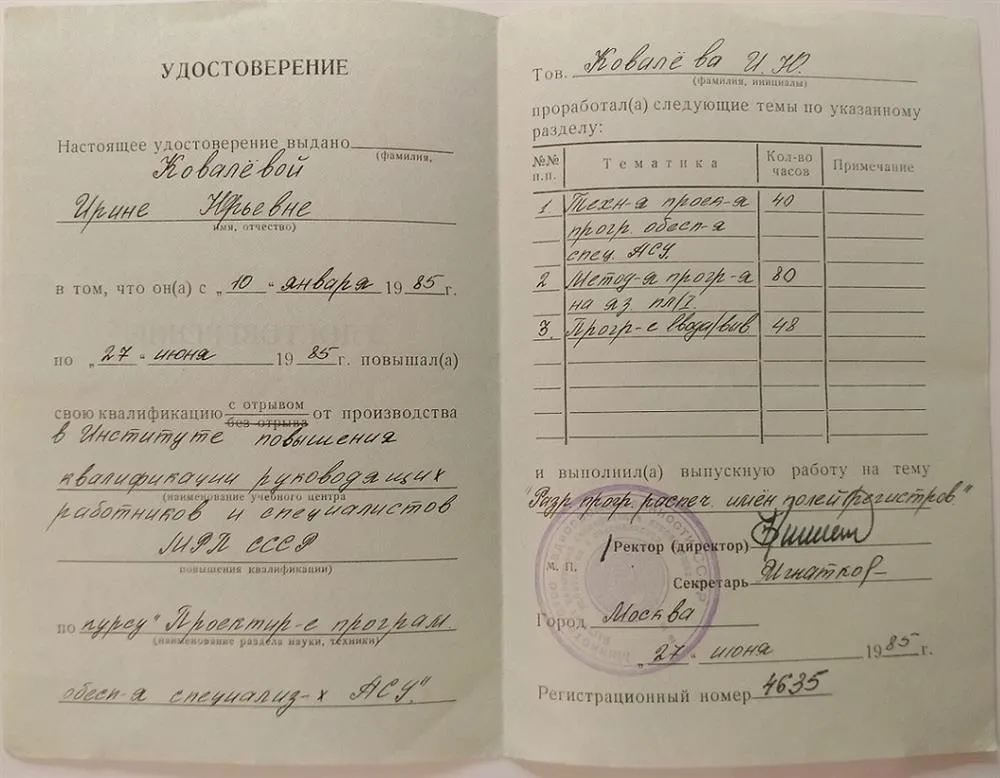 УДОСТОВЕРЕНИЕ
Настоящее удостоверение выдано
(фамилия,
Ковалёвой
Ирине Юрьевне
имя, отчество)
в том, что он(а) с „10“ января 1985 г.
по „27“ июня 1985 г. повышал(а)
свою квалификацию с отрывом от производства
без отрыва
в Институте повышения
квалификации руководящих
(наименование учебного центра
работников и специалистов
МРП СССР
повышения квалификации)
по курсу "Проектир-е програм.
(наименование раздела науки, техники)
обесп-я специализ-х АСУ."
Тов. Ковалёва И. Ю.
(фамилия, инициалы)
проработал(а) следующие темы по указанному
разделу:
№№ п.п. Тематика Кол-во часов Примечание
1. Техн-я проек-я 40
прогр. обесп-я
спец. АСУ.
2 Метод-я прогр-я 80
на яз. пл/I.
3. Прогр-е ввода/выв 48
и выполнил(а) выпускную работу на тему
"Разр. прогр. распеч. имён полей регистров"
Ректор (директор)
М. П.
Секретарь Игнатков
Город Москва
„27“ июня 1985 г.
Регистрационный номер 4635